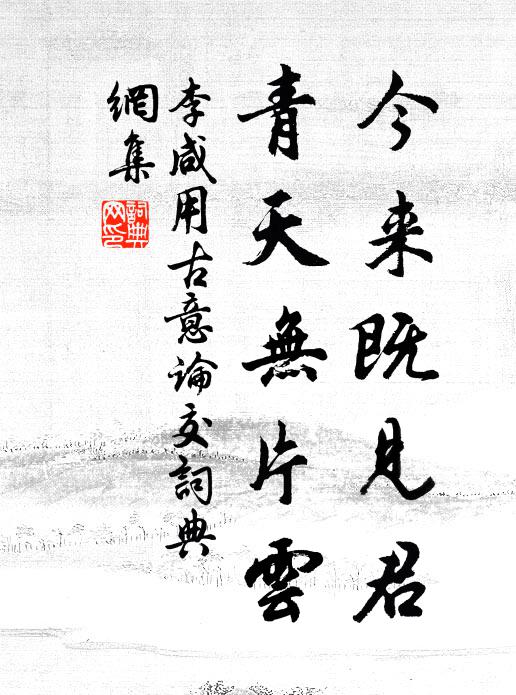 今来既見君
青天無片雲
李咸用古意論交詞典
網集
詞典
网印